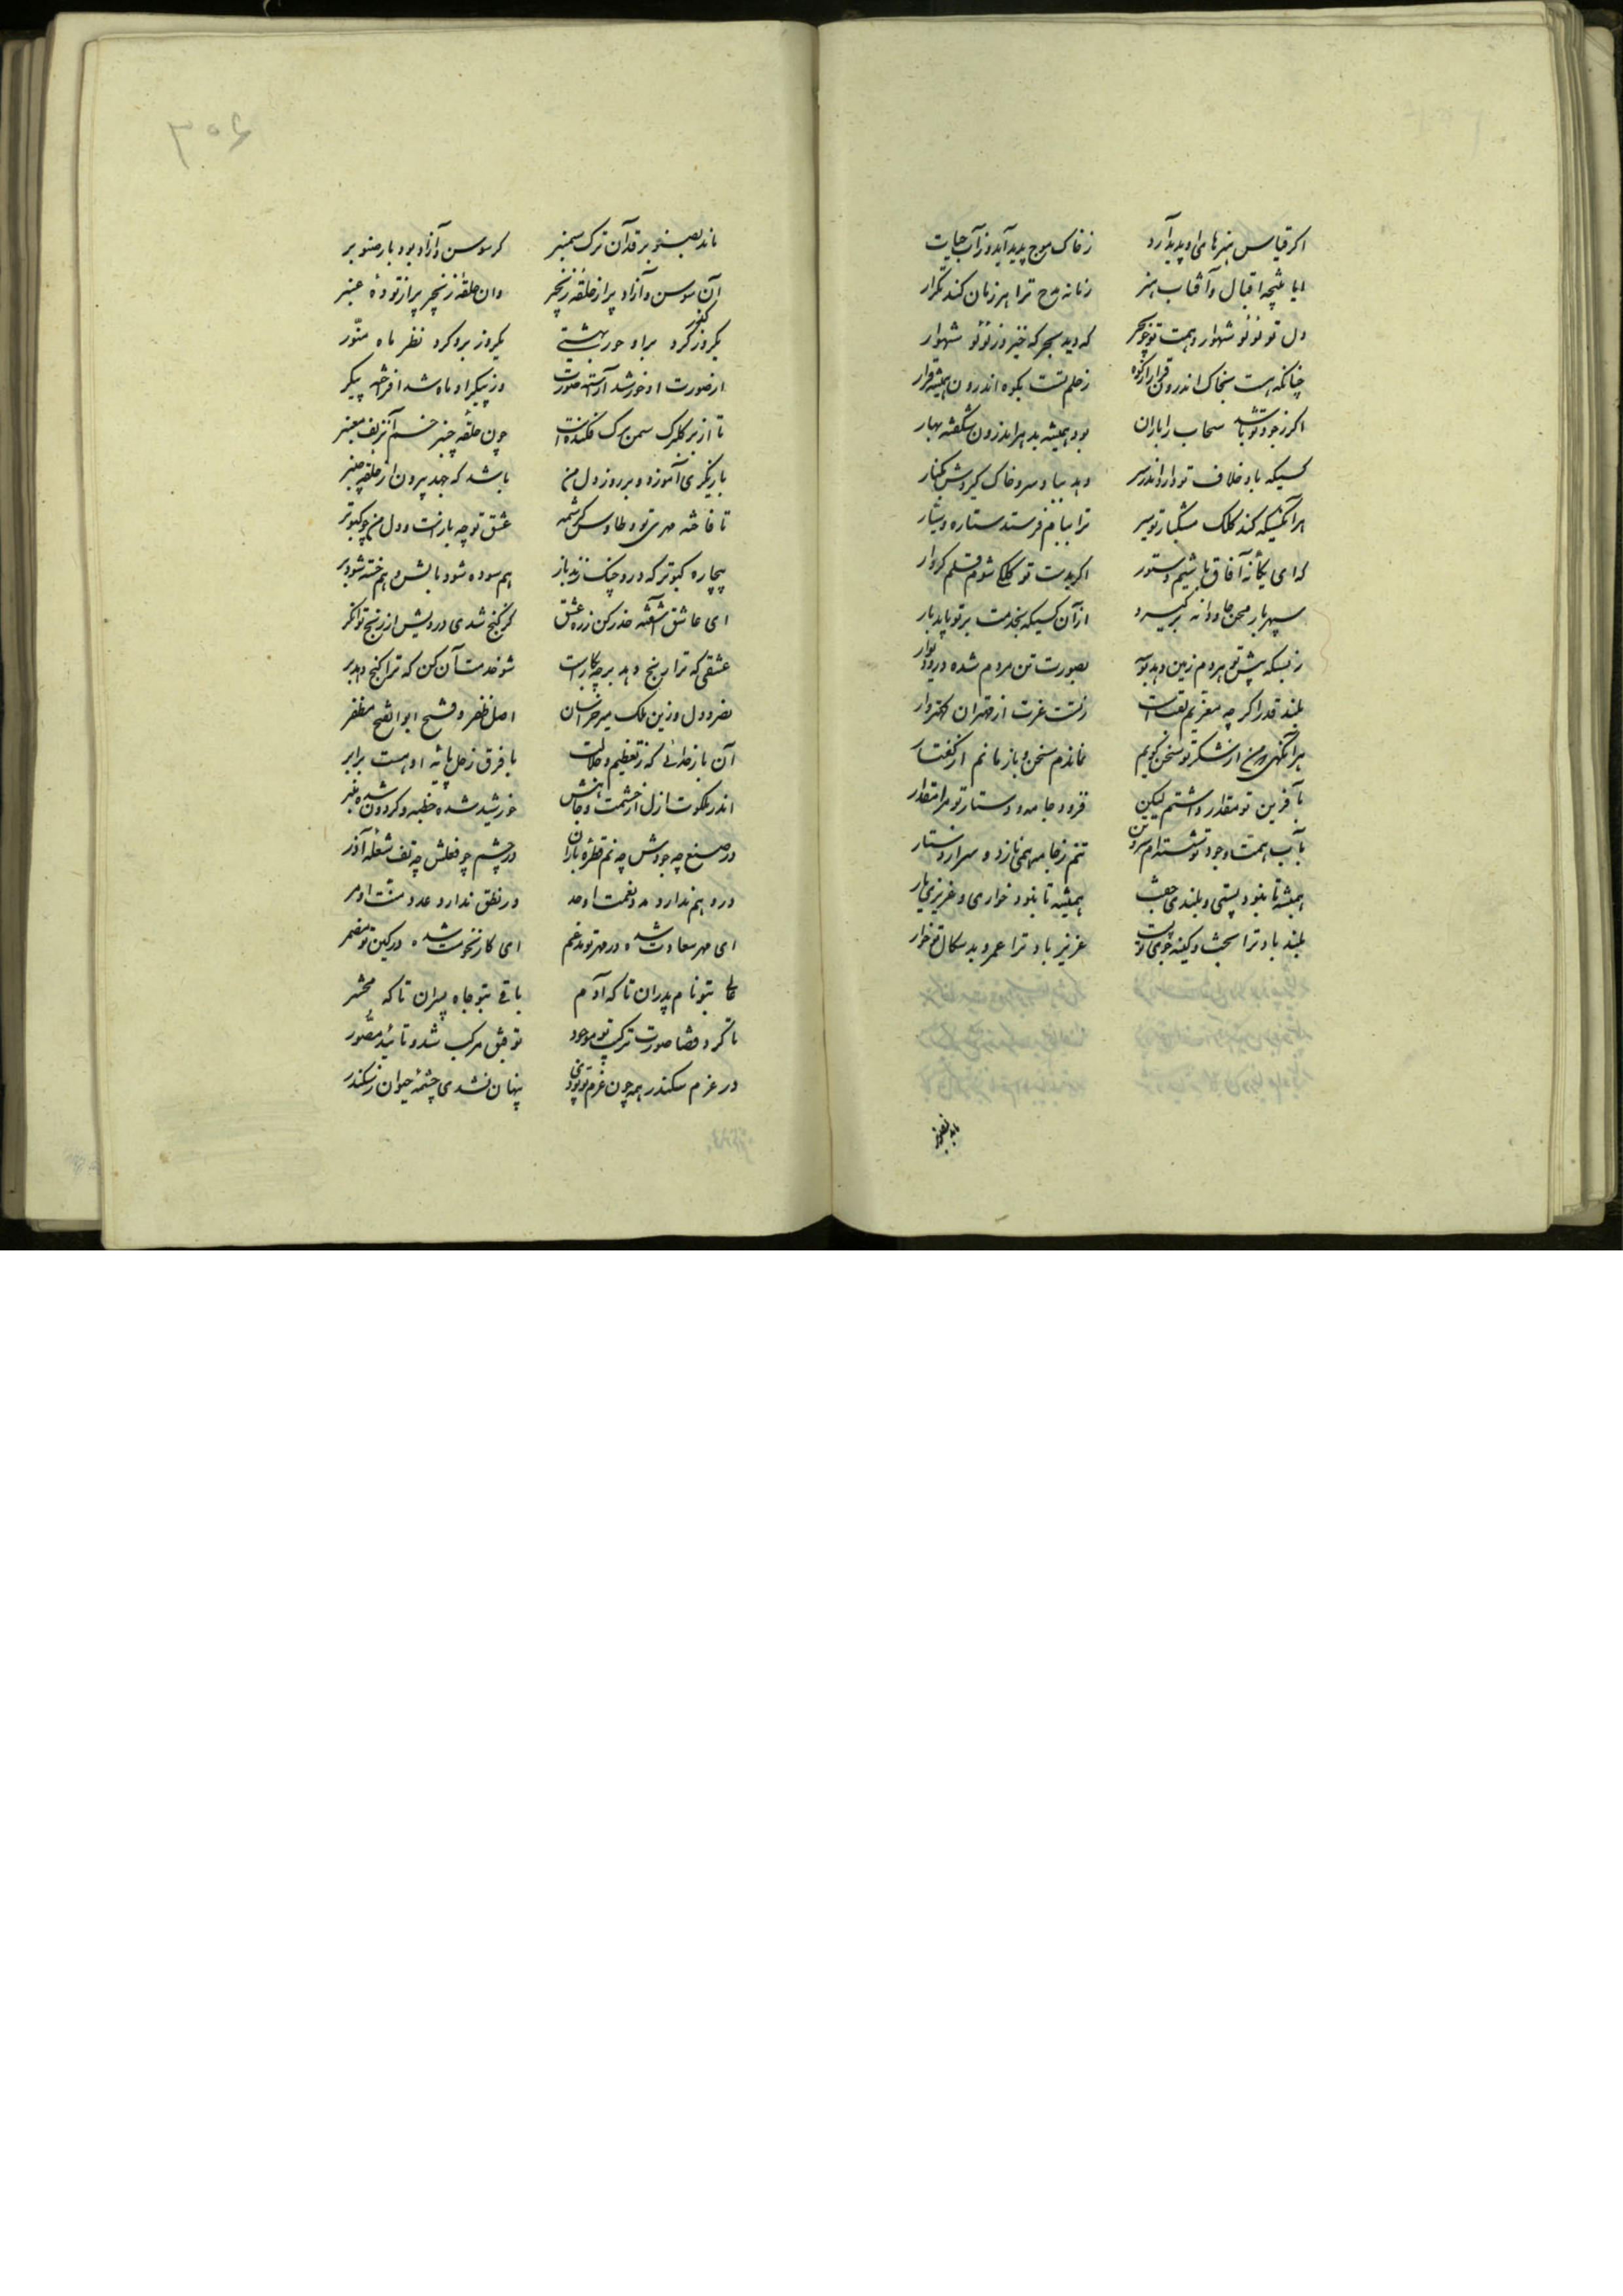 اکر قیاس هنرهای او پدید آرد زخاک موج پدید آید و ز آب حیات
ایا نتیجه اقبال و آفتاب هنر زمانه مدح ترا هر زمان کند تکرار
دل تو لؤلؤ شهوار و همت تو چو بحر که دید بحر که خیزد ز لؤلؤ شهوار
چنانکه هست بخاک اندرون قرار از کوه ز حلم تست بکوه اندرون همیشه قرار
اکر ز جود تو باشد سحاب را باران بود همیشه بدهر اندرون شکفته بهار
کسیکه باد خلاف تو دارد اندر سر دهد بباد سر و خاک کیردش بکنار
هر آنکهیکه کند کلک مشکبار تو سیر ترا بنام فرستد ستاره و سیار
که ای یکانه آفاق باشیم دستور اکر بدست تو کلک شوم قلم کردار
سپهر بار محن جاودانه برکیرد از آن کسیکه بخدمت بر تو یابد بار
ز بسکه پیش تو مردم زمین دهد بوسه بصورت تن مردم شده در و دیوار
بلند قدرا کرچه مقریم تفت است ز تست عزت از مهتران کهتروار
هر آنکهی که من از شکر تو سخن کویم نماندم سخن و باز مانم از کفتار
بآفرین تو مقدار داشتم لیکن فزود جامه و دستار تو مرا مقدار
بآب همت و جود تو شسته‌ام سر و تن تنم ز جامه همی نازد و سر از دستار
همیشه تا نبود پستی و بلندی جفت همیشه تا نبود خواری و عزیزی یار
بلند باد ترا بخت و کینه جوی تو پست عزیز باد ترا عمر و بد سکال تو خوار
ماند بصنوبر
۳۰۶
ماند بصنوبر قد آن ترک سمنبر کر سوسن آزاد بود بار صنوبر
آن سوسن آزاد پر از حلقه زنجیر وان حلقه زنجیر پر از توده عنبر
یکروز کذر کرد براو حور بهشتی یکروز بدو کرد نظر ماه منّور
از صورت او خورشید آراسته صورت وز پیکر او ماه شد افراخته پیکر
تا از بر کلبرک سمن برک فکنده است چون حلقه چنبر خم آن زلف معنبر
بازیکری آموزد و بر روز دل من باشد که جهد بیرون از حلقه چنبر
تا فاخته مهری تو و طاوس کرشمه عشق تو چه باز است و دل من چو کبوتر
بیچاره کبوتر که درو چنک زند باز هم سوده شود بالش و هم خسته شود بر
ای عاشق آشفته حذر کن ز ره عشق کز کنج شدی درویش از رنج توانکر
عشقی که ترا رنج دهد بر چه بکار است شو خدمت آن کن که ترا کنج دهد بر
نصر دول و زین ملک میر خراسان اصل ظفر و فتح ابوالفتح مظفر
آن بار خدائی که ز تعظیم و جلالت با فرق زحل پایه او هست برابر
اندر ملکوت ازل از حشمت و جاهش خورشید شده خطبه و کردون شده منبر
در صنع چه جودش چه نم قطره باران در چشم چو فعلش چه تف شعله آذر
در وهم ندارد مدد نعمت او حد در نطق ندارد عدد منت او مر
ای مهر سعادت شده در مهر تو مدغم ای کار نحوست شده در کین تو مضمر
عالی بتو نام پدران تا که آدم باقی بتو جاه پسران تا که محشر
تا کرد قضا صورت ترکیب تو موجود توفیق مرکب شد و تائید مصّور
در عزم سکندر همه چون عزم تو بودی پنهان نشدی چشمه حیوان ز سکندر